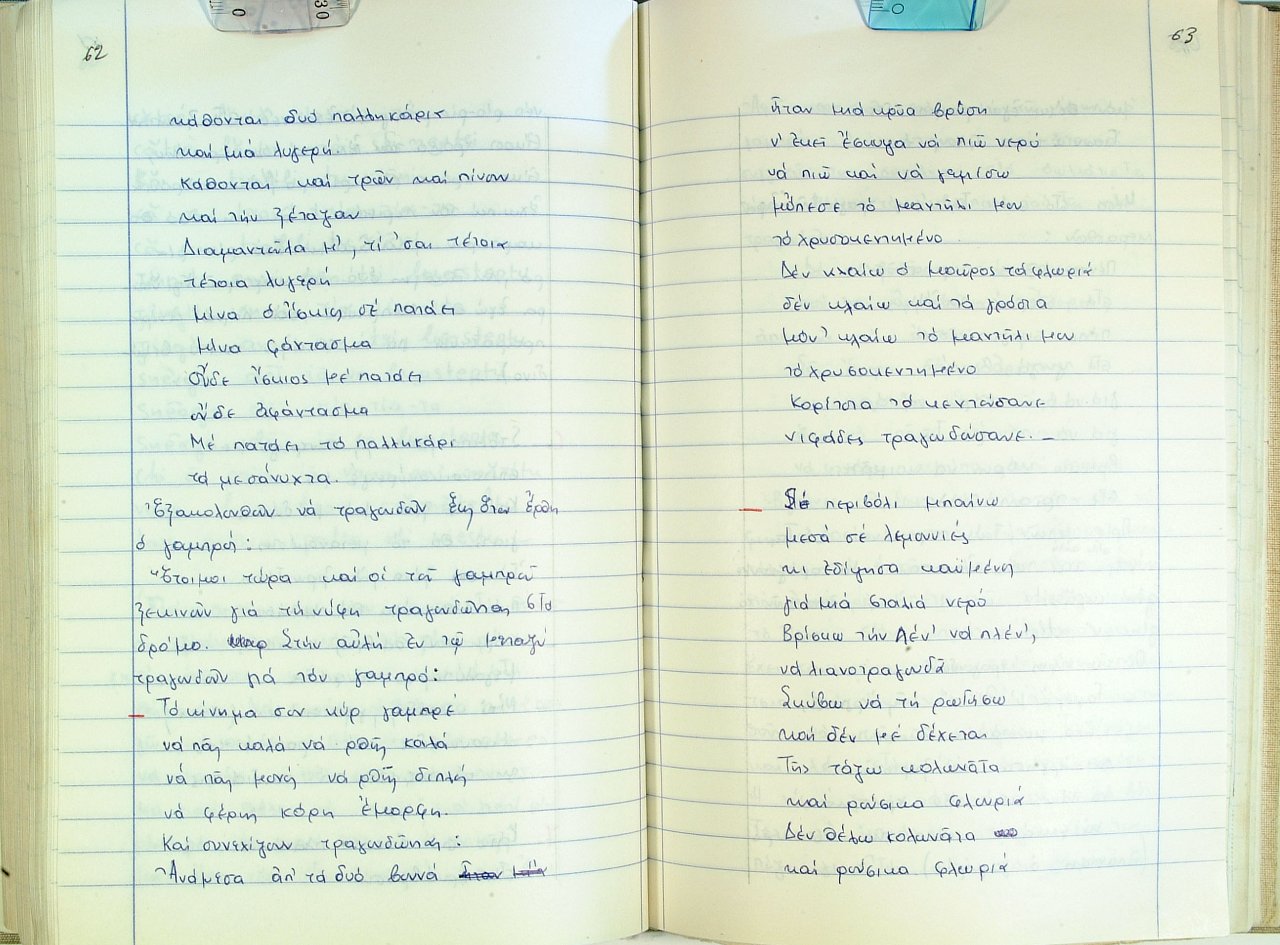 62
κάθονται δυό παλληκάρια
καί μιά λυγερή.
Κάθονται καί τρῶν καί πίνουν
καί τήν ξέταζαν
Διαμαντούλα μ', τί 'σαι τέτοια
τέτοια λυγερή
Μήνα ὁ ἴσκιος σέ πατάει
μήνα φάντασμα
οὔδε ἴσκιος μέ πατάει
οὔδε ἀφάντασμα
Μέ πατάει τό παλληκάρι
τά μεσάνυχτα.
Ἐξακολουθοῦν νά τραγουδοῦν ἕως ὅτου ἔρθη
ὁ γαμπρός:
Ἕτοιμοι τώρα καί οἱ τοῦ γαμπροῦ
ξεκινοῦν γιά τή νύφη τραγουδῶντας στό
δρόμο. Στήν αὐλή ἐν τῷ μεταξύ
τραγουδοῦν γιά τόν γαμπρό:
Τό κίνημα σου κύρ γαμπρέ
νά πᾶς καλά νά ρθῆς καλά
νά πᾶς μονός νά ρθῆς διπλός
νά φέρης κόρη ἔμορφη.
Καί συνεχίζουν τραγουδῶντας:
Ἀνάμεσα ἀπ' τά δυό βουνά
63
ἦταν μιά κρύα βρύση
ν' ἐκεῖ ἔσκυψα νά πιῶ νερό
νά πιῶ καί νά γεμίσω
μὄπεσε τό μαντήλι μου
τό χρυσοκεντημένο
Δέν κλαίω ὁ μαῦρος τά φλωριά
δέν κλαίω καί τά γρόσια
μόν' κλαίω τό μαντήλι μου
τό χρυσοκεντημένο
Κορίτσια τό κεντούσανε
νιφάδες τραγουδούσανε. –
Σέ περιβόλι μπαίνω
μεσά σέ λεμονιές
κι ἐδίψησα καϋμένη
γιά μιά σταλιά νερό
Βρίσκω τήν Λέν' νά πλέν',
νά λιανοτραγουδᾶ
Σκύβω νά τή ρωτήσω
καί δέν μέ δέχεται
Τῆς τάζω κολωνᾶτα
καί ρούσικα φλουριά
Δέν θέλω κολωνᾶτα
καί ρούσικα φλωριά